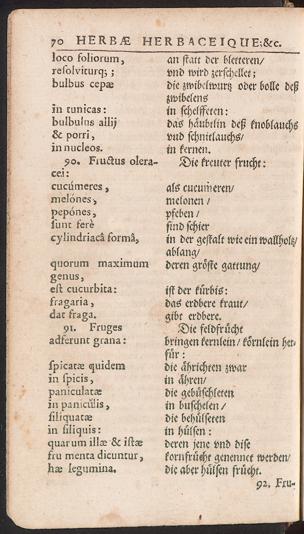 70 HERBÆ HERBACEIQUE:&c.
loco foliorum, an statt der bletteren/
resolviturq; ; vnd wird zerschellet;
bulbus cepæ die zwibelwurtz oder bolle deß
zwibelens
in tunicas: in schelffeten:
bulbulus allij das häubtlin deß knoblauchs
& porri, vnd schnitlauchs/
in nucleos. in kernen.
90. Fructus olera- Die kreuter frucht:
cei:
cucúmeres, als cucumeren/
melónes, melonen/
pepónes, pfeben/
sunt ferè sind schier
cylindriacâ formâ, in der gestalt wie ein wallholtz/
ablang/
quorum maximum deren gröste gattung/
genus,
est cucurbita: ist der kürbis:
fragaria, das erdbere kraut/
dat fraga. gibt erdbere.
91. Fruges Die feldfrücht
adferunt grana: bringen kernlein/ körnlein her-
für:
spicatæ quidem die ährichten zwar
in spicis, in ähren/
paniculatæ die gebüschleten
in paniculis, in buschelen/
siliquatæ die behülseten
in siliquis: in hülsen:
quarum illæ & istæ deren jene vnd dise
frumenta dicuntur, kornfrücht genennet werden/
hæ legumina. die aber hülsen frücht.
92. Fru-